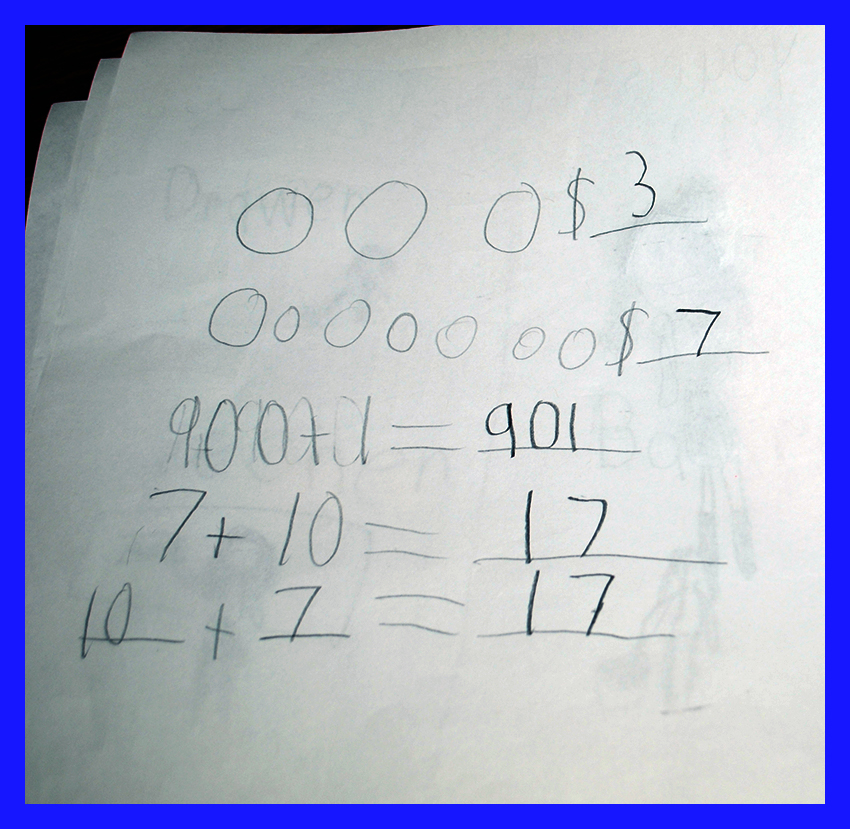 $3
$7
900+1=901
7+10=17
10+7=17